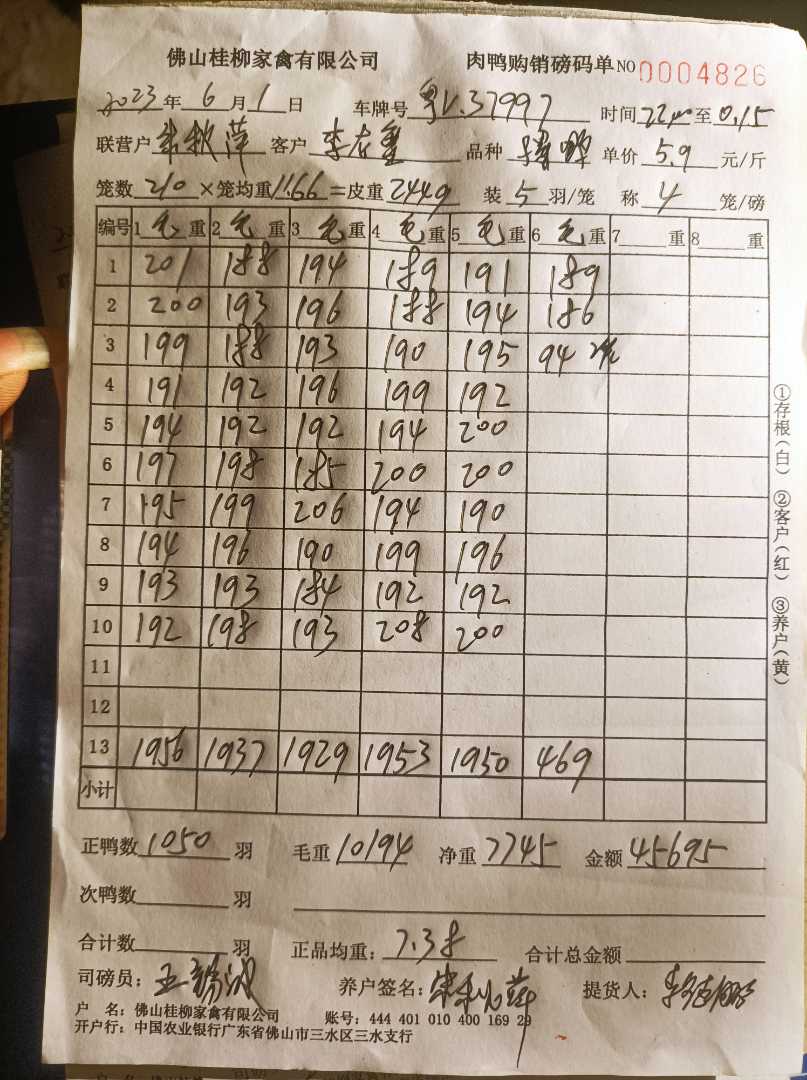 佛山桂柳家禽有限公司 肉鸭购销磅码单 NO 0004826
2023年 6月 1日 车牌号 粤V.37997 时间 22:00 至 0.15
联营户 客户 品种 单价 5.9 元/斤
笼数 210 ×笼均重 11.66 =皮重 2449 装 5 羽/笼 称 4 笼/磅
编号 1 毛 重 2 毛 重 3 毛 重 4 毛 重 5 毛 重 6 毛 重 7 重 8 重
1 201 188 194 189 191 189
2 200 193 196 188 194 186
3 199 188 193 190 195 94
4 191 192 196 199 192
5 194 192 192 194 200
6 197 198 185 200 200
7 195 199 206 194 190
8 194 196 190 199 196
9 193 193 184 192 192
10 192 198 193 208 200
11
12
13 1956 1937 1929 1953 1950 469
小计
正鸭数 1050 羽 毛重 10194 净重 7745 金额 45695
次鸭数 羽
合计数 羽 正品均重: 7.38 合计总金额
司磅员: 养户签名: 提货人:
户 名: 佛山桂柳家禽有限公司 账号: 444 401 010 400 169 29
开户行: 中国农业银行广东省佛山市三水区三水支行
①存根(白) ②客户(红) ③养户(黄)